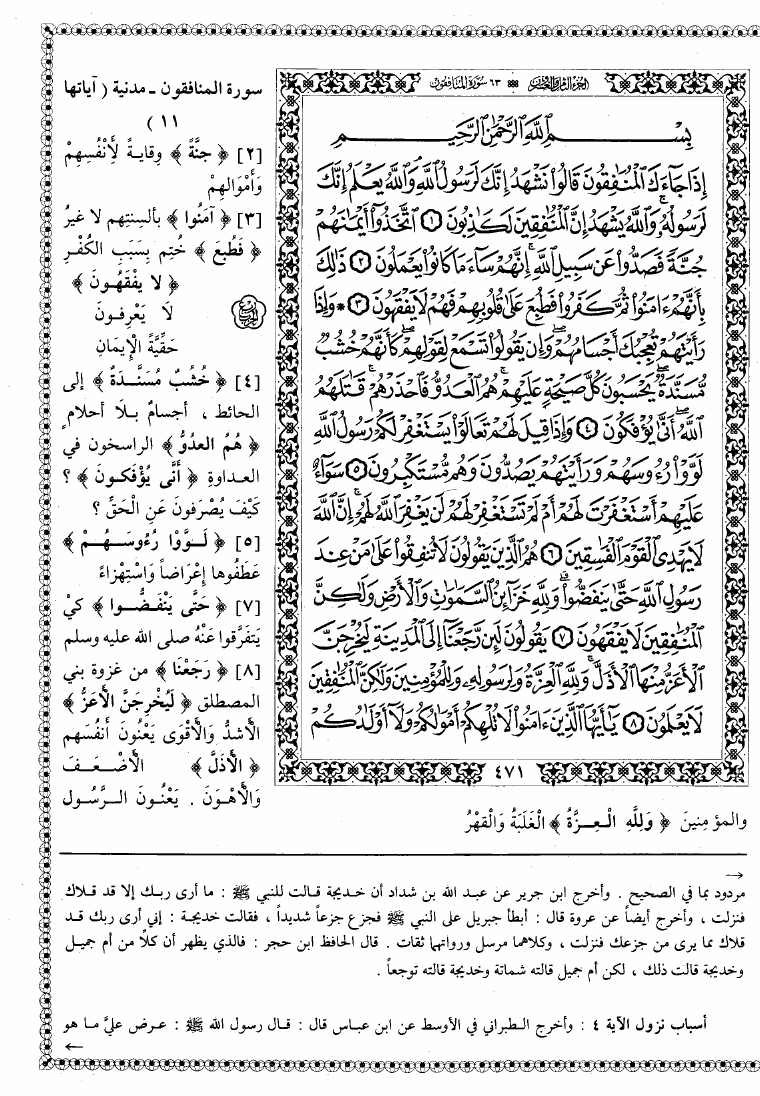 الجزء الثامن والعشرون ٦٣ سورة المنافقون
بِسْمِ ٱللَّهِ ٱلرَّحْمَٰنِ ٱلرَّحِيمِ
إِذَا جَآءَكَ ٱلْمُنَٰفِقُونَ قَالُوا۟ نَشْهَدُ إِنَّكَ لَرَسُولُ ٱللَّهِ وَٱللَّهُ يَعْلَمُ إِنَّكَ
لَرَسُولُهُۥ وَٱللَّهُ يَشْهَدُ إِنَّ ٱلْمُنَٰفِقِينَ لَكَٰذِبُونَ ١ ٱتَّخَذُوٓا۟ أَيْمَٰنَهُمْ
جُنَّةً فَصَدُّوا۟ عَن سَبِيلِ ٱللَّهِ إِنَّهُمْ سَآءَ مَا كَانُوا۟ يَعْمَلُونَ ٢ ذَٰلِكَ
بِأَنَّهُمْ ءَامَنُوا۟ ثُمَّ كَفَرُوا۟ فَطُبِعَ عَلَىٰ قُلُوبِهِمْ فَهُمْ لَا يَفْقَهُونَ ٣ * وَإِذَا
رَأَيْتَهُمْ تُعْجِبُكَ أَجْسَامُهُمْ وَإِن يَقُولُوا۟ تَسْمَعْ لِقَوْلِهِمْ كَأَنَّهُمْ خُشُبٌ
مُّسَنَّدَةٌ يَحْسَبُونَ كُلَّ صَيْحَةٍ عَلَيْهِمْ هُمُ ٱلْعَدُوُّ فَٱحْذَرْهُمْ قَٰتَلَهُمُ
ٱللَّهُ أَنَّىٰ يُؤْفَكُونَ ٤ وَإِذَا قِيلَ لَهُمْ تَعَالَوْا۟ يَسْتَغْفِرْ لَكُمْ رَسُولُ ٱللَّهِ
لَوَّوْا۟ رُءُوسَهُمْ وَرَأَيْتَهُمْ يَصُدُّونَ وَهُم مُّسْتَكْبِرُونَ ٥ سَوَآءٌ
عَلَيْهِمْ أَسْتَغْفَرْتَ لَهُمْ أَمْ لَمْ تَسْتَغْفِرْ لَهُمْ لَن يَغْفِرَ ٱللَّهُ لَهُمْ إِنَّ ٱللَّهَ
لَا يَهْدِى ٱلْقَوْمَ ٱلْفَٰسِقِينَ ٦ هُمُ ٱلَّذِينَ يَقُولُونَ لَا تُنفِقُوا۟ عَلَىٰ مَنْ عِندَ
رَسُولِ ٱللَّهِ حَتَّىٰ يَنفَضُّوا۟ وَلِلَّهِ خَزَآئِنُ ٱلسَّمَٰوَٰتِ وَٱلْأَرْضِ وَلَٰكِنَّ
ٱلْمُنَٰفِقِينَ لَا يَفْقَهُونَ ٧ يَقُولُونَ لَئِن رَّجَعْنَآ إِلَى ٱلْمَدِينَةِ لَيُخْرِجَنَّ
ٱلْأَعَزُّ مِنْهَا ٱلْأَذَلَّ وَلِلَّهِ ٱلْعِزَّةُ وَلِرَسُولِهِۦ وَلِلْمُؤْمِنِينَ وَلَٰكِنَّ ٱلْمُنَٰفِقِينَ
لَا يَعْلَمُونَ ٨ يَٰٓأَيُّهَا ٱلَّذِينَ ءَامَنُوا۟ لَا تُلْهِكُمْ أَمْوَٰلُكُمْ وَلَآ أَوْلَٰدُكُمْ
٤٧١
سورة المنافقون ـ مدنية ( آياتها
١١ )
[٢] ﴿ جنَّةً ﴾ وِقايـةً لِأَنْفُسِهِمْ
وَأَمْوَالِهِمْ
[٣] ﴿ آمَنُوا ﴾ بألسِنتِهِم لا غيرُ
﴿ فَطُبِعَ ﴾ خُتِم بِسَبَبِ الكُفْرِ
﴿ لا يفْقَهُـونَ ﴾
لَا يَعْرِفـونَ
حَقيَّةَ الإِيمَانِ
[٤] ﴿ خُشُبٌ مُسَنَّـدَةٌ ﴾ إلى
الحائط ، أجسامٌ بـلَا أحلامٍ
﴿ هُمُ العدُوُّ ﴾ الراسخون في
العداوةِ ﴿ أَنَّى يُؤْفَكـونَ ﴾ ؟
كَيْفَ يُصْرَفونَ عَنِ الْحَقِّ ؟
[٥] ﴿ لَـوَّوْا رُءُوسَـهُـمْ ﴾
عَطَفُوها إِعْرَاضاً وَاسْتِهْزاءً
[٧] ﴿ حَتَّى يَنْفَضُّـوا ﴾ كيْ
يَتفَرَّقوا عَنْهُ صلى الله عليه وسلم
[٨] ﴿ رَجَعْنَا ﴾ من غزوة بني
المصطلق ﴿ لَيُخْرِجَنَّ الأَعَزُّ ﴾
الأَشدُّ وَالْأَقْوى يَعْنُونَ أَنفُسَهم
﴿ الأَذَلَّ ﴾ الأَضْـعَـفَ
وَالأَهْـوَنَ . يَعْنُـونَ الـرَّسُـول
والمؤمِنينَ ﴿ وَللَّهِ الْـعِـزَّةُ ﴾ الْغَلَبَةُ وَالْقَهْرُ
→
مردود بما في الصحيح . وأخرج ابن جرير عن عبـد الله بن شداد أن خـديجة قـالت للنبي ﷺ : ما أرى ربـك إلا قد قـلاك
فنزلت ، وأخرج أيضاً عن عروة قال : أبطأ جبريل على النبي ﷺ فجزع جزعاً شديداً ، فقالت خديجـة : إني أرى ربك قـد
قلاك مما يرى من جزعك فنزلت ، وكلاهما مرسل ورواتهما ثقات . قال الحافظ ابن حجر : فالذي يظهر أن كلًا من أم جميـل
وخديجة قالت ذلك ، لكن أم جميل قالته شماتة وخديجة قالته توجعاً .
أسباب نزول الآية ٤ : وأخرج الـطبراني في الأوسط عن ابن عبـاس قال : قـال رسول الله ﷺ : عـرض عليَّ مـا هو
←